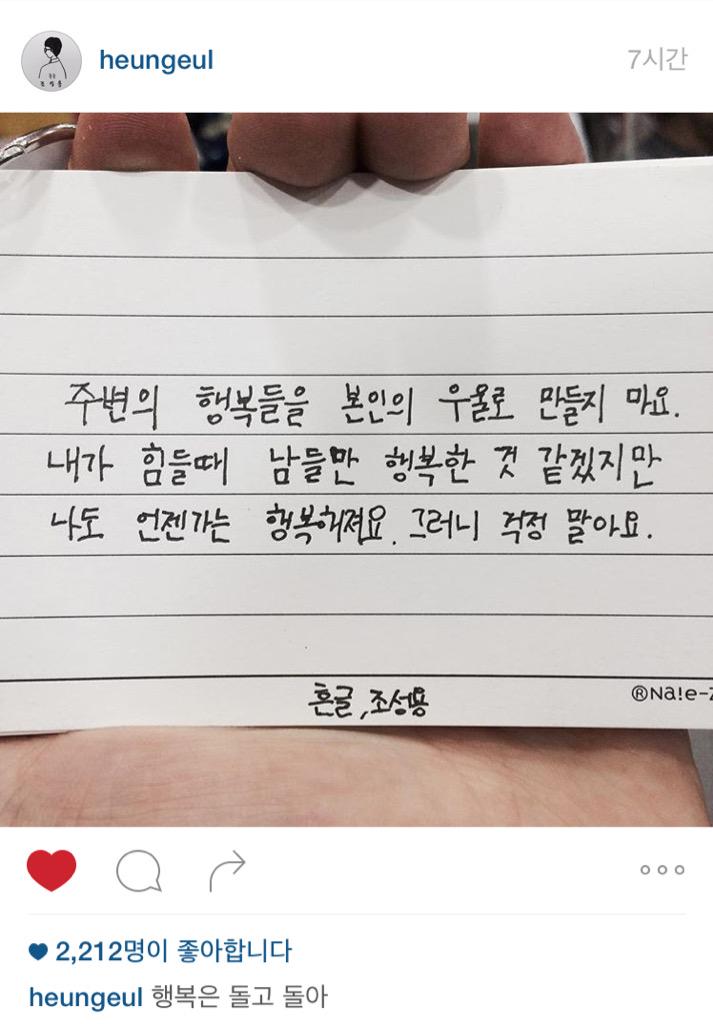 heungeul
7시간
주변의 행복들을 본인의 우울로 만들지 마요.
내가 힘들때 남들만 행복한 것 같겠지만
나도 언젠가는 행복해져요. 그러니 걱정 말아요.
흔글, 조성용
®Na!e-
2,212명이 좋아합니다
heungeul 행복은 돌고 돌아